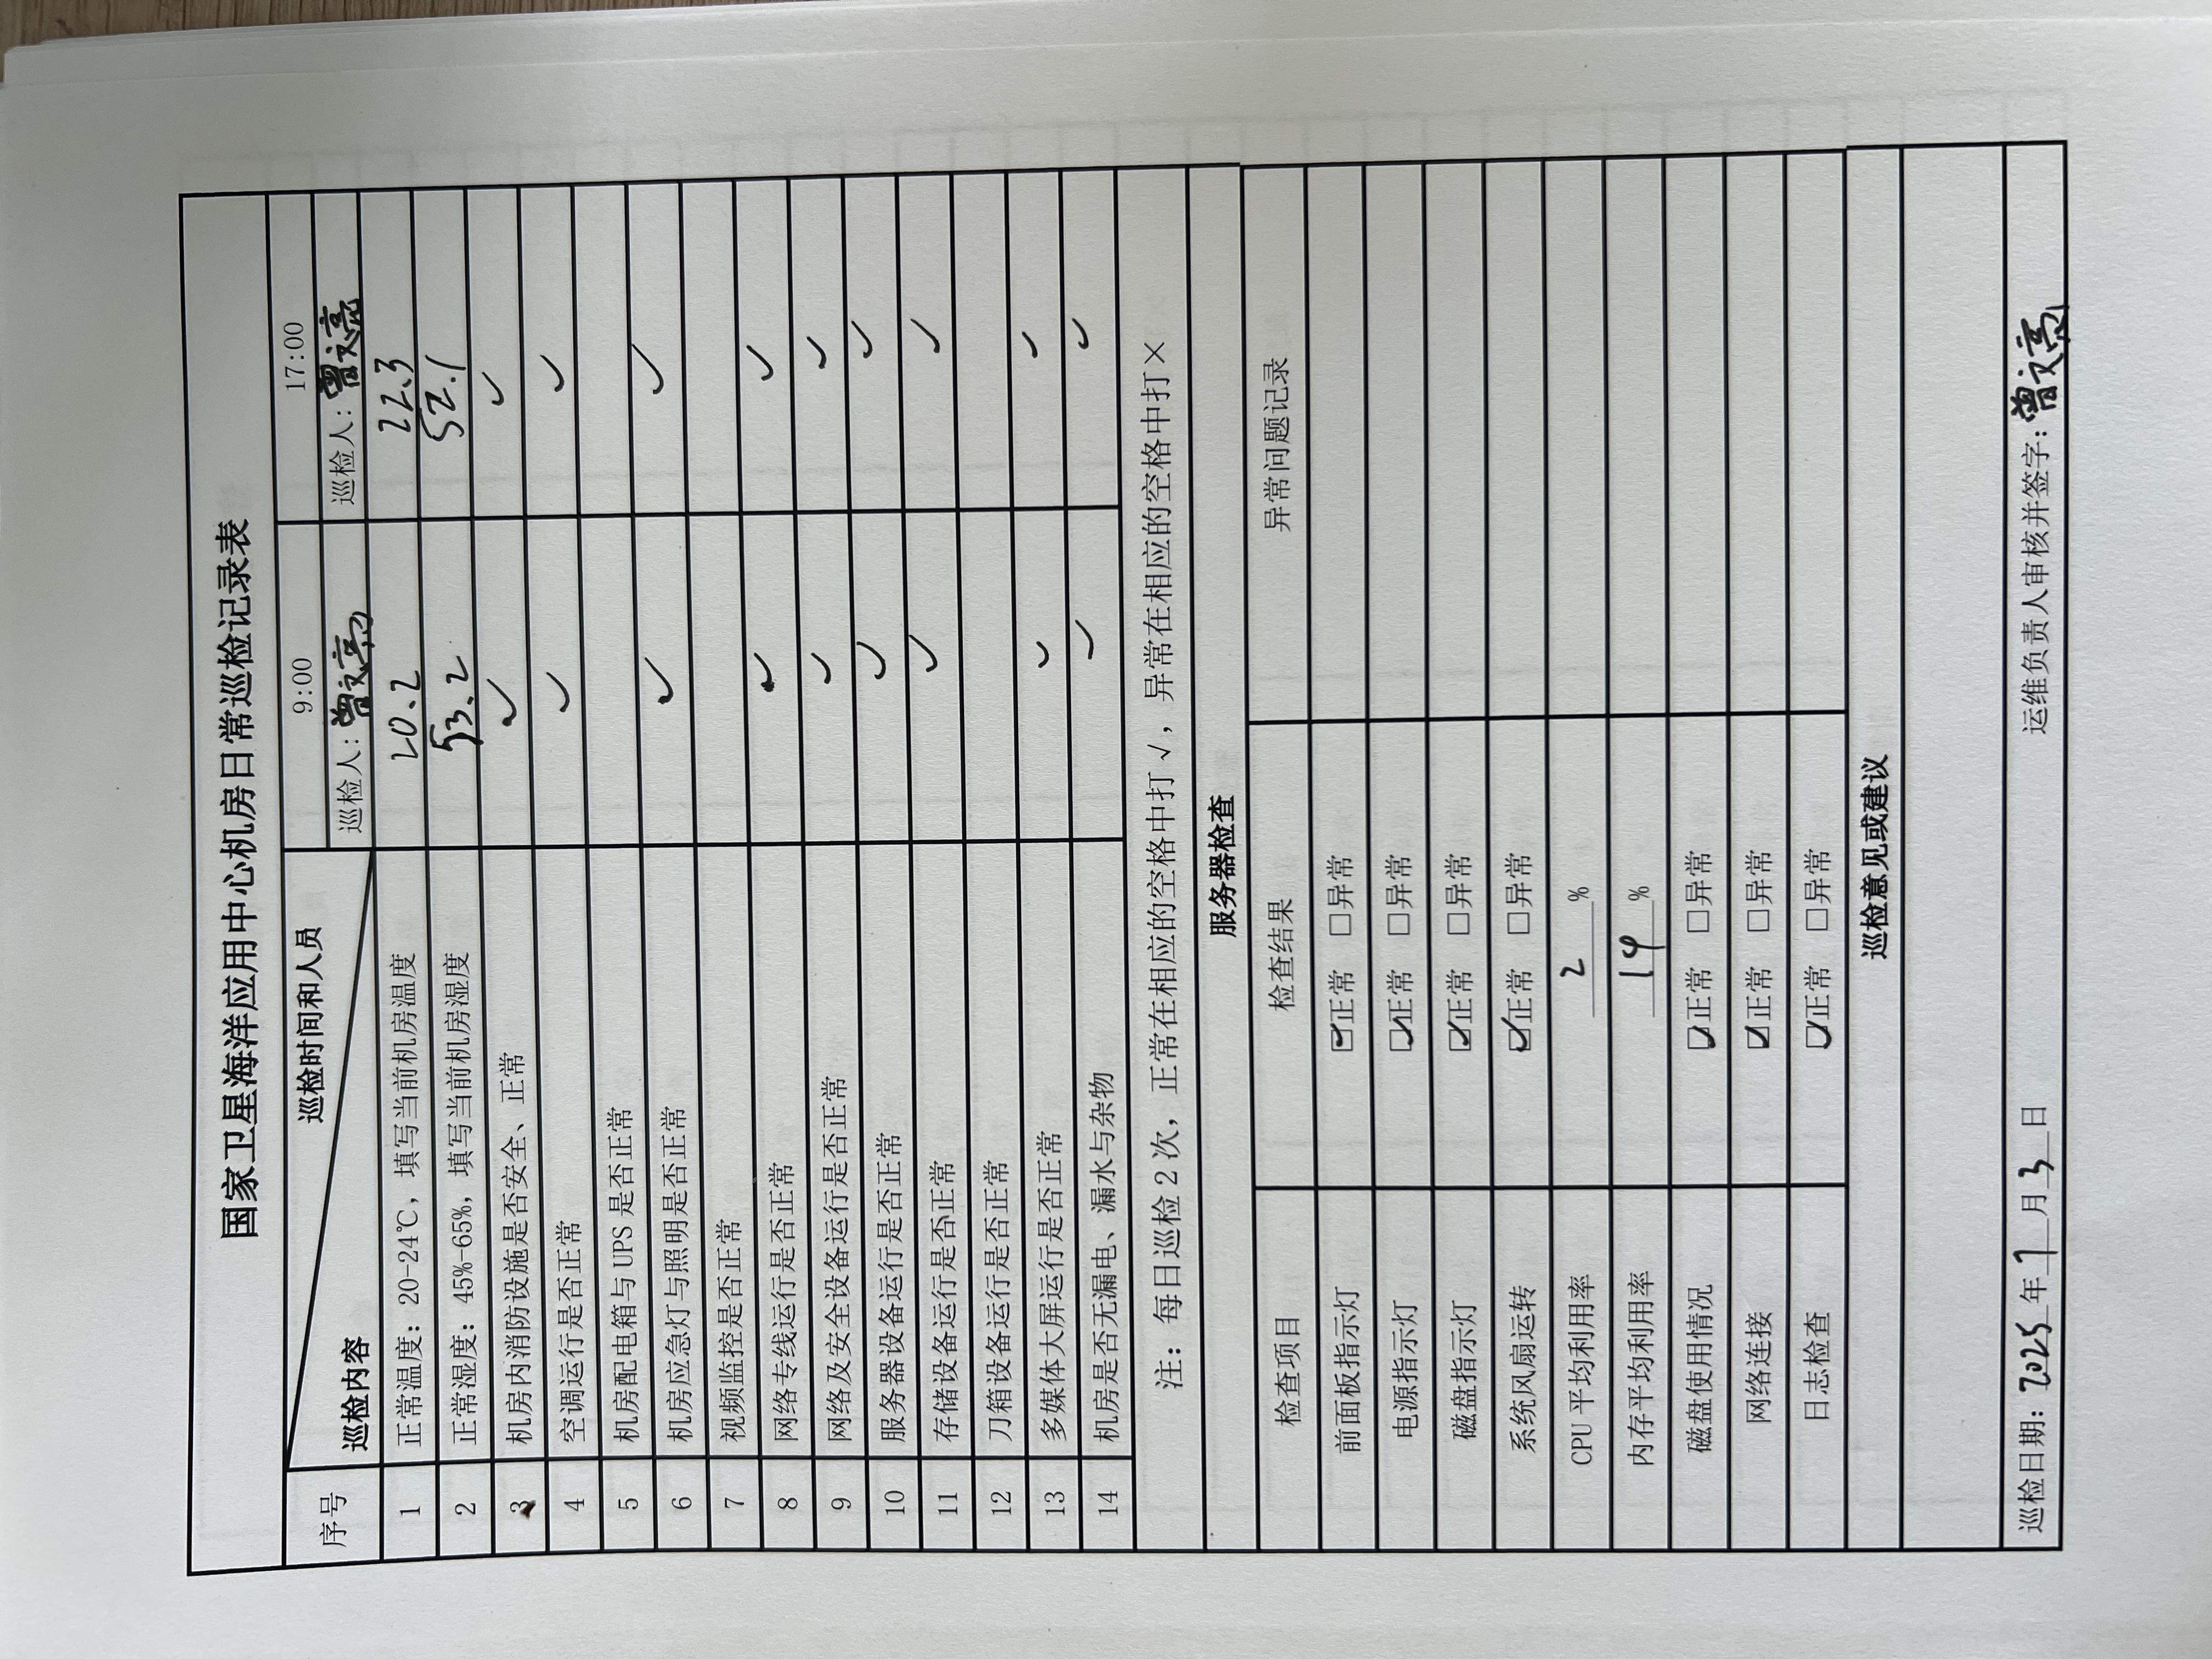 国家卫星海洋应用中心机房日常巡检记录表
序号 巡检内容 巡检时间和人员 9:00 17:00
巡检人：曾文亮 巡检人：曾文亮
1 正常温度：20-24℃，填写当前机房温度 20.2 22.3
2 正常湿度：45%-65%，填写当前机房湿度 53.2 52.1
3 机房内消防设施是否安全、正常 ✓ ✓
4 空调运行是否正常 ✓ ✓
5 机房配电箱与 UPS 是否正常
6 机房应急灯与照明是否正常 ✓ ✓
7 视频监控是否正常
8 网络专线运行是否正常 ✓ ✓
9 网络及安全设备运行是否正常 ✓ ✓
10 服务器设备运行是否正常 ✓ ✓
11 存储设备运行是否正常 ✓ ✓
12 刀箱设备运行是否正常
13 多媒体大屏运行是否正常 ✓ ✓
14 机房是否无漏电、漏水与杂物 ✓ ✓
注：每日巡检 2 次，正常在相应的空格中打 √，异常在相应的空格中打×
服务器检查
检查项目 检查结果 异常问题记录
前面板指示灯 ☑正常 □异常
电源指示灯 ☑正常 □异常
磁盘指示灯 ☑正常 □异常
系统风扇运转 ☑正常 □异常
CPU 平均利用率 2 %
内存平均利用率 14 %
磁盘使用情况 ☑正常 □异常
网络连接 ☑正常 □异常
日志检查 ☑正常 □异常
巡检意见或建议
巡检日期：2025年7月3日 运维负责人审核并签字：曾文亮